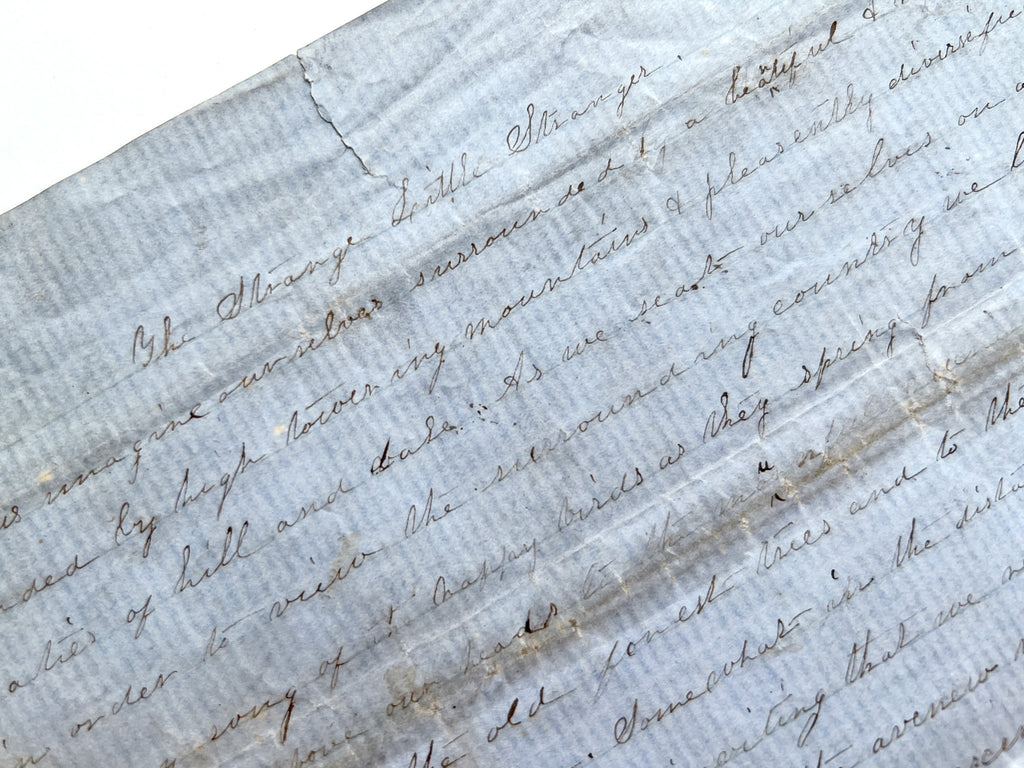 The Strange Little Stranger.
us imagine ourselves surrounded a beatiful &
nded by high towering mountains & pleasently diversifie
aties of hill and dale. As we seat our selves on a
in order to view the surrounding country we l
song of happy birds as they spring from
bove our heads to the
the old forest trees and to the
Somewhat in the dista
inviting that we
avenew